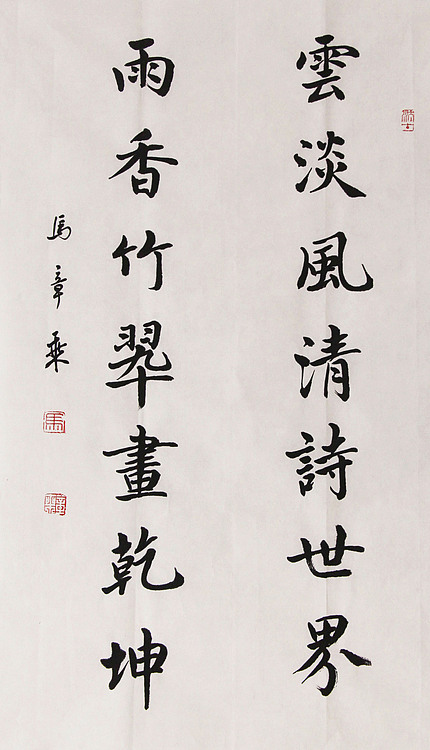 雲淡風清詩世界
雨香竹翠畫乾坤
馬章乘